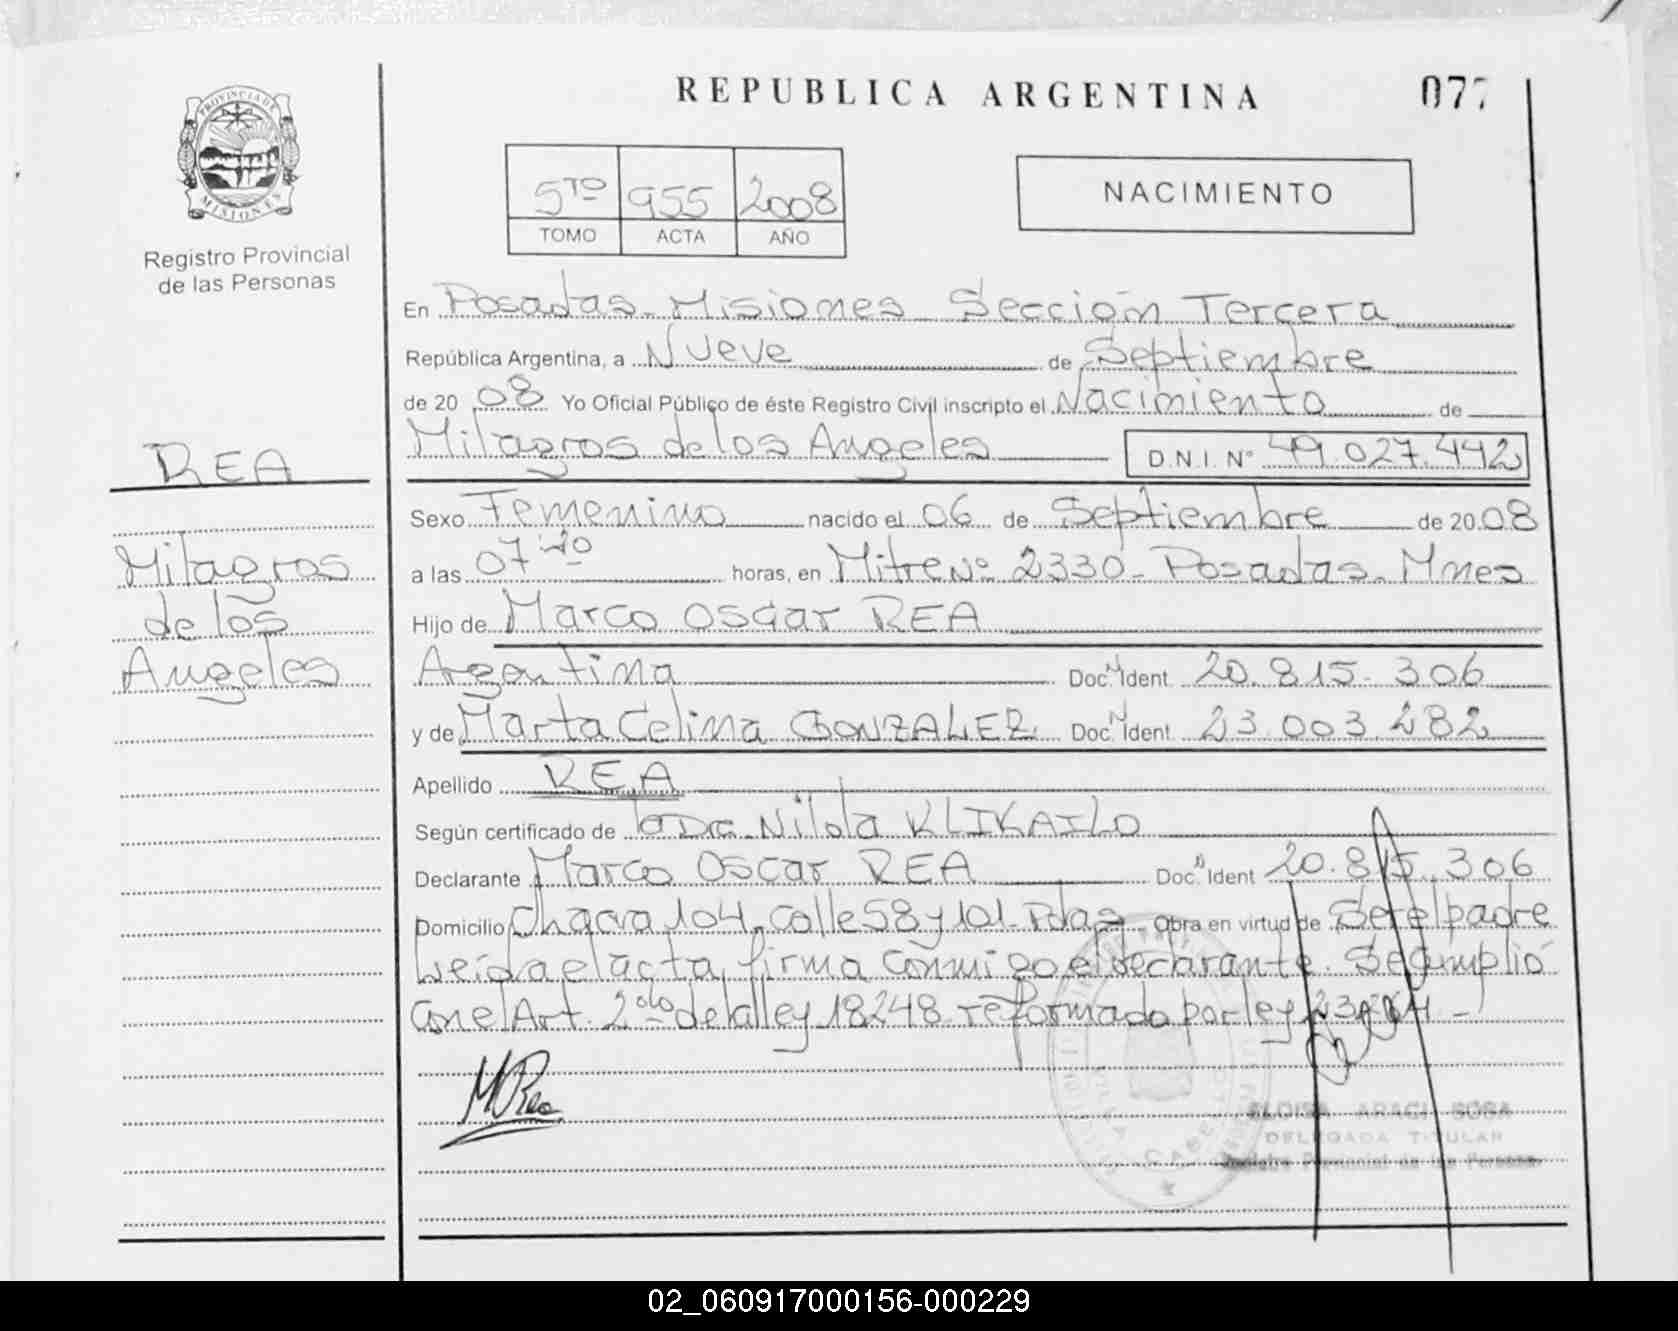 REPUBLICA ARGENTINA
077
PROVINCIA DE
MISIONES
Registro Provincial
de las Personas
5TO 955 2008
TOMO ACTA AÑO
NACIMIENTO
En Posadas - Misiones - Sección Tercera
República Argentina, a Nueve de Septiembre
de 20 08 Yo Oficial Público de éste Registro Civil inscripto el Nacimiento de
Milagros de los Angeles D.N.I. Nº 49.027.442
REA
Milagros
de los
Angeles
Sexo Femenino nacido el 06 de Septiembre de 20 08
a las 07 horas, en Mitre Nº 2330 - Posadas - Mnes
Hijo de Marco Oscar REA
Argentina Doc. Ident. 20.815.306
y de Marta Celina GONZALEZ Doc. Ident. 23.003.282
Apellido REA
Según certificado de la Dra. Nilda KLIKAILO
Declarante Marco Oscar REA Doc. Ident 20.815.306
Domicilio Chacra 104, calle 58 y 101 - Pdas - Obra en virtud de Ser el padre
Leída el acta, firma conmigo el declarante. Se cumplió
con el Art. 2º de la ley 18248 reformado por ley
MRea
ELOISA ARACI SOSA
DELEGADA TITULAR
Registro Provincial de las Personas
02_060917000156-000229